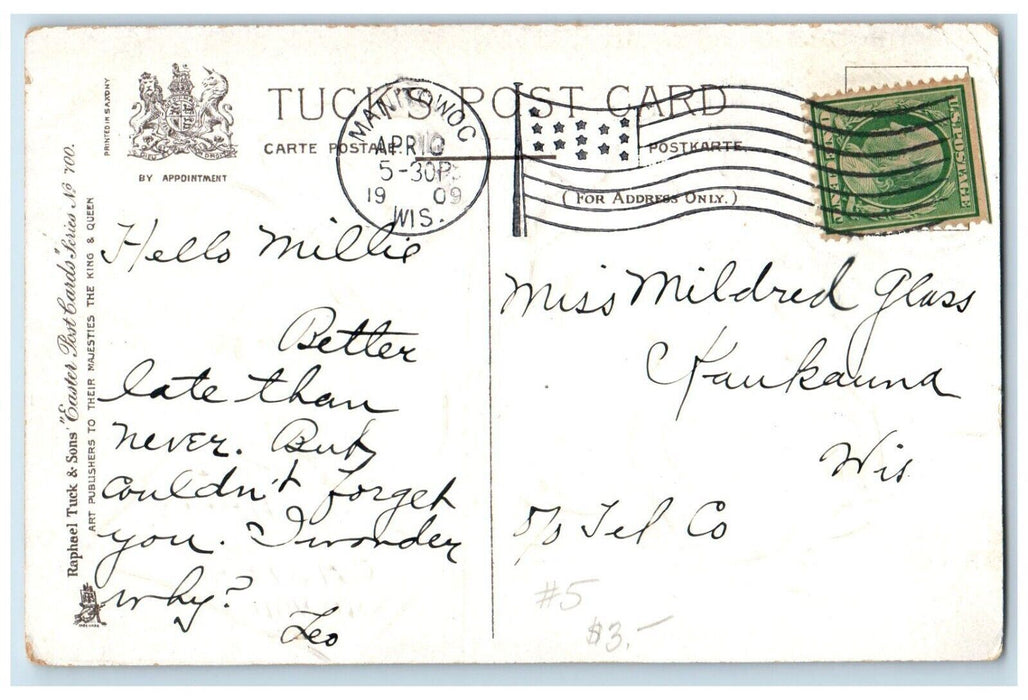 TUCK'S POST CARD
CARTE POSTALE. POSTKARTE.
(FOR ADDRESS ONLY.)
PRINTED IN SAXONY
BY APPOINTMENT
Raphael Tuck & Sons' "Easter Post Cards" Series No 700.
ART PUBLISHERS TO THEIR MAJESTIES THE KING & QUEEN
MANITOWOC
APR 10
5-30P
19 09
WIS.
U.S. POSTAGE
Hello Millie
Better
late than
never. But
couldn't forget
you. I wonder
why?
Leo
Miss Mildred Glass
Kaukauna
Wis
c/o Tel Co
#5
$3.-